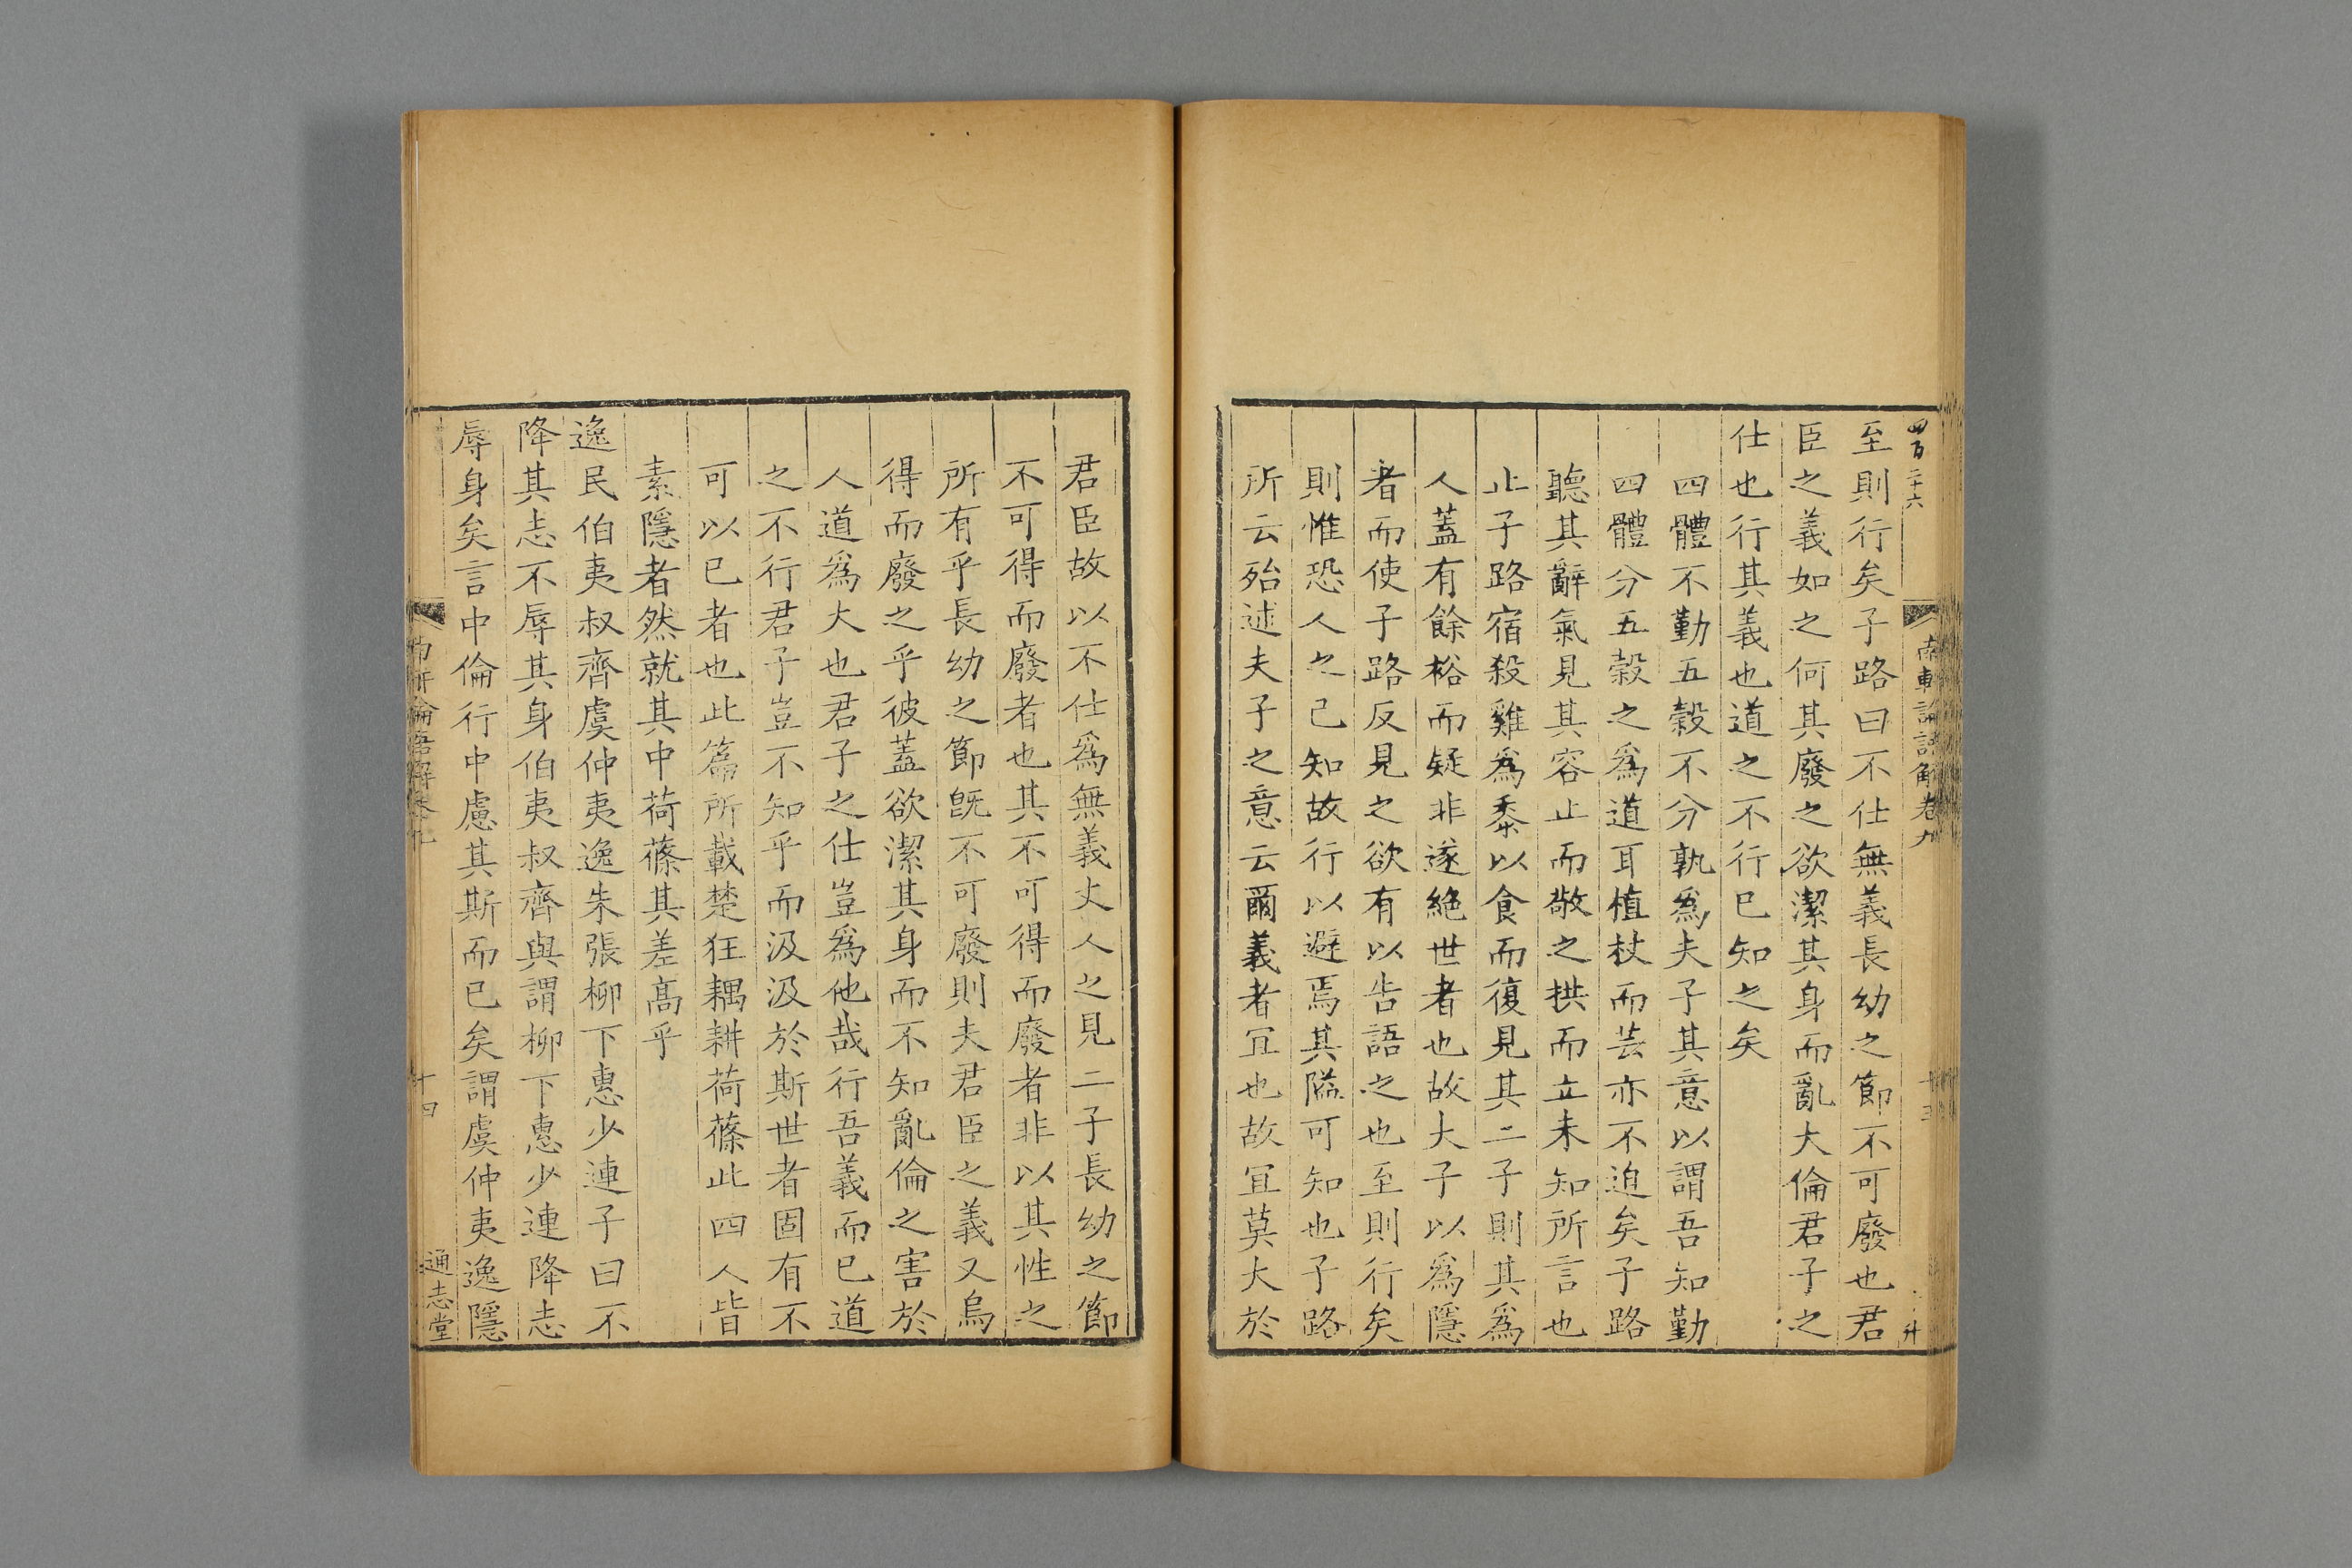 四百二十六
南軒論語解卷九
升
至則行矣子路曰不仕無義長幼之節不可廢也君
臣之義如之何其廢之欲潔其身而亂大倫君子之
仕也行其義也道之不行已知之矣
四體不勤五穀不分孰爲夫子其意以謂吾知勤
四體分五穀之爲道耳植杖而芸亦不迫矣子路
聽其辭氣見其容止而敬之拱而立未知所言也
止子路宿殺雞爲黍以食而復見其二子則其爲
人蓋有餘裕而疑非遂絶世者也故夫子以爲隱
者而使子路反見之欲有以告語之也至則行矣
則惟恐人之己知故行以避焉其隘可知也子路
所云殆述夫子之意云爾義者冝也故冝莫大於
君臣故以不仕爲無義丈人之見二子長幼之節
不可得而廢者也其不可得而廢者非以其性之
所有乎長幼之節旣不可廢則夫君臣之義又烏
得而廢之乎彼蓋欲潔其身而不知亂倫之害於
人道爲大也君子之仕豈爲他哉行吾義而已道
之不行君子豈不知乎而汲汲於斯世者固有不
可以已者也此篇所載楚狂耦耕荷蓧此四人皆
素隱者然就其中荷蓧其差髙乎
逸民伯夷叔齊虞仲夷逸朱張柳下惠少連子曰不
降其志不辱其身伯夷叔齊與謂柳下惠少連降志
辱身矣言中倫行中慮其斯而已矣謂虞仲夷逸隱
南軒論語解卷九
十四
通志堂